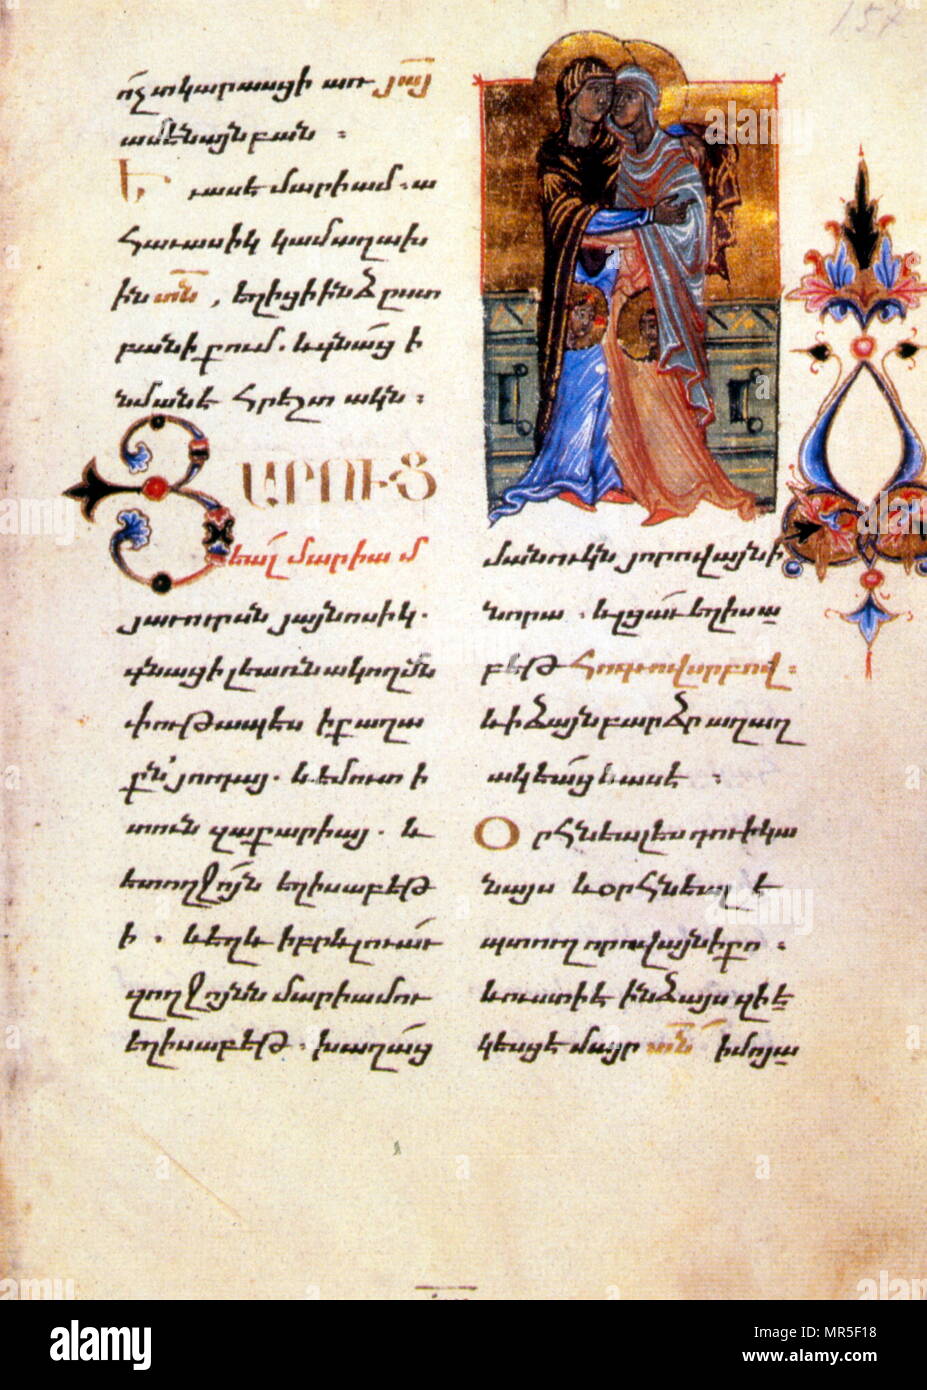 ո՛չ տկարասցի առ յա՟յ
ամենայն բան ։
Եւ ասէ մարիամ . ա
հաւասիկ կամ աղախ
ին տն՟ , եղիցի ինձ ըստ
բանի քում . և գնաց ի
նմանէ հրեշտակն ։
ՅԱՐՈՒՑ
եալ մարիամ
յաւուրսն յայնոսիկ .
գնաց ի լեառնակողմն
փութապէս ի քաղա
քն յուդայ . և եմուտ ի
տուն զաքարիայ . և
ետ ողջոյն եղիսաբեթ
ի . և եղև իբրև լուաւ
զողջոյնն մարիամու
եղիսաբեթ . խաղաց
մանուկն յորովայնի
նորա . և լցաւ եղիսա
բեթ հոգւով սրբով ։
և ի ձայն բարձր աղաղ
ակեաց և ասէ ։
Օրհնեալ ես դու ի կա
նայս և օրհնեալ է
պտուղ որովայնի քո ։
և ուստի է ինձ այս զի ե
կեսցէ մայր տն՟ իմոյ ա
157
alamy
Image ID: MR5F18
www.alamy.com